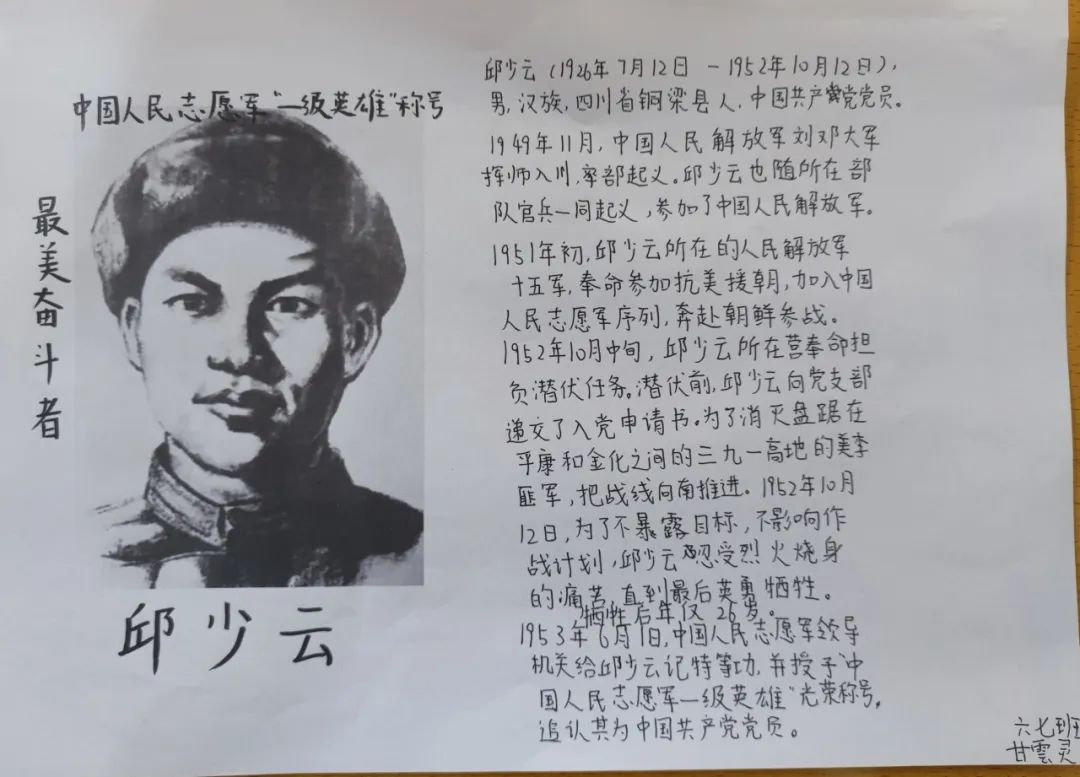 中国人民志愿军"一级英雄"称号
最美奋斗者
邱少云
邱少云（1926年7月12日－1952年10月12日），
男，汉族，四川省铜梁县人，中国共产党党员。
1949年11月，中国人民解放军刘邓大军
挥师入川，率部起义。邱少云也随所在部
队官兵一同起义，参加了中国人民解放军。
1951年初，邱少云所在的人民解放军
十五军，奉命参加抗美援朝，加入中国
人民志愿军序列，奔赴朝鲜参战。
1952年10月中旬，邱少云所在营奉命担
负潜伏任务。潜伏前，邱少云向党支部
递交了入党申请书。为了消灭盘踞在
平康和金化之间的三九一高地的美李
匪军，把战线向南推进。1952年10月
12日，为了不暴露目标，不影响作
战计划，邱少云忍受烈火烧身
的痛苦，直到最后英勇牺牲。
牺牲后年仅26岁。
1953年6月1日，中国人民志愿军领导
机关给邱少云记特等功，并授予"中
国人民志愿军一级英雄"光荣称号，
追认其为中国共产党党员。
六七班
甘雲灵